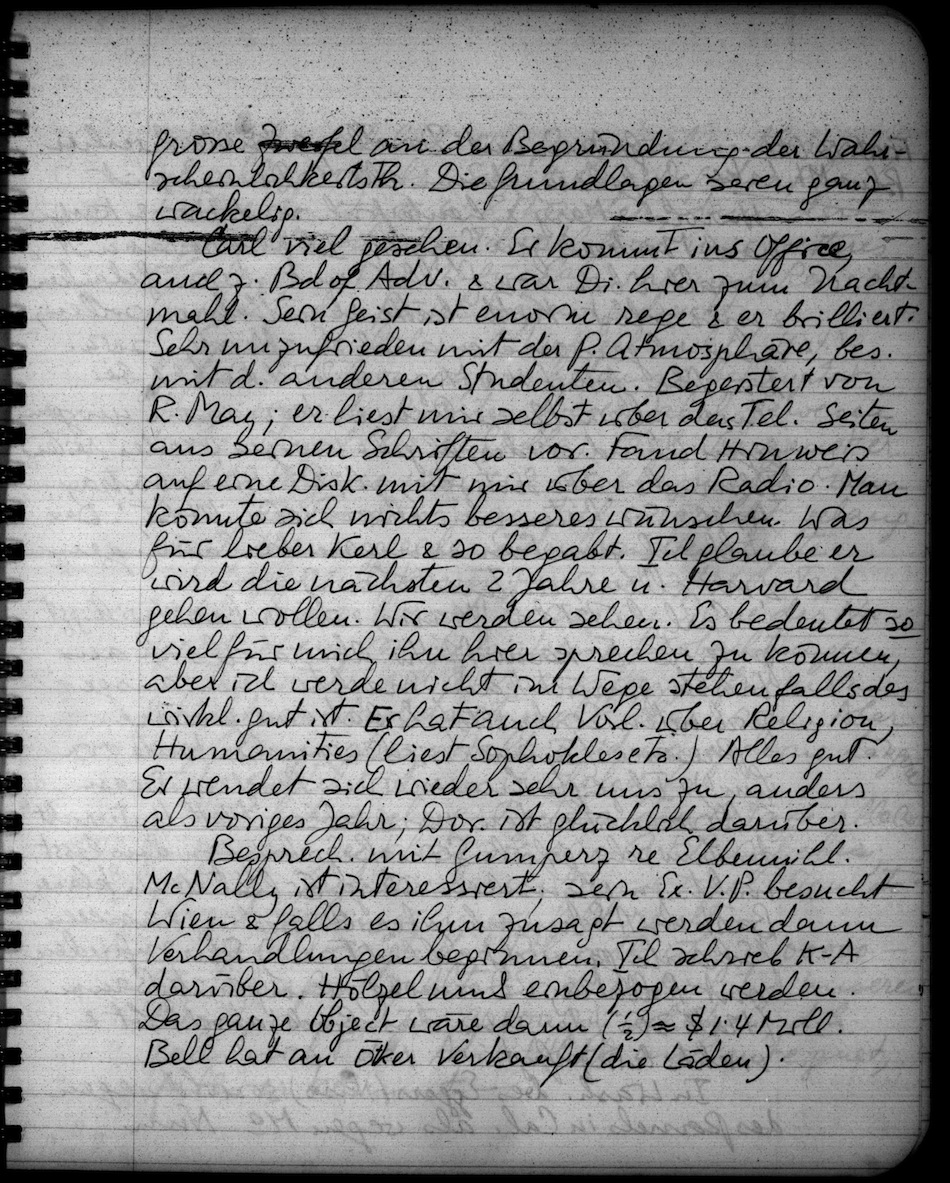 grosse Zweifel an der Begründung der Wahr-
scheinlichkeitsth. Die Grundlagen seien ganz
wackelig.
Carl viel gesehen. Er kommt ins Office,
auch z. Bd of Adv. & war Di. hier zum Nacht-
mahl. Sein Geist ist enorm rege & er brilliert.
Sehr unzufrieden mit der P. Atmosphäre, bes.
mit d. anderen Studenten. Begeistert von
R. May; er liest mir selbst über das Tel. Seiten
aus seinen Schriften vor. Fand Hinweis
auf eine Disk. mit mir über das Radio. Man
könnte sich nichts besseres wünschen. Was
für lieber Kerl & so begabt. Ich glaube er
wird die nächsten 2 Jahre n. Harvard
gehen wollen. Wir werden sehen. Es bedeutet so
viel für mich ihn hier sprechen zu können,
aber ich werde nicht im Wege stehen falls das
wirkl. gut ist. Er hat auch Vorl. über Religion,
Humanities (liest Sophokles etc.) Alles gut.
Er wendet sich wieder sehr uns zu, anders
als voriges Jahr; Dor. ist glücklich darüber.
Besprech. mit Gumperz re Elbemühl.
McNally ist interessiert; sein Ex. V.P. besucht
Wien & falls es ihm zusagt werden dann
Verhandlungen beginnen. Ich schrieb K-A
darüber. Hölzel muß einbezogen werden.
Das ganze Object wäre dann (½) ≈ $1.4 Mill.
Bell hat an verkauft (die Läden).